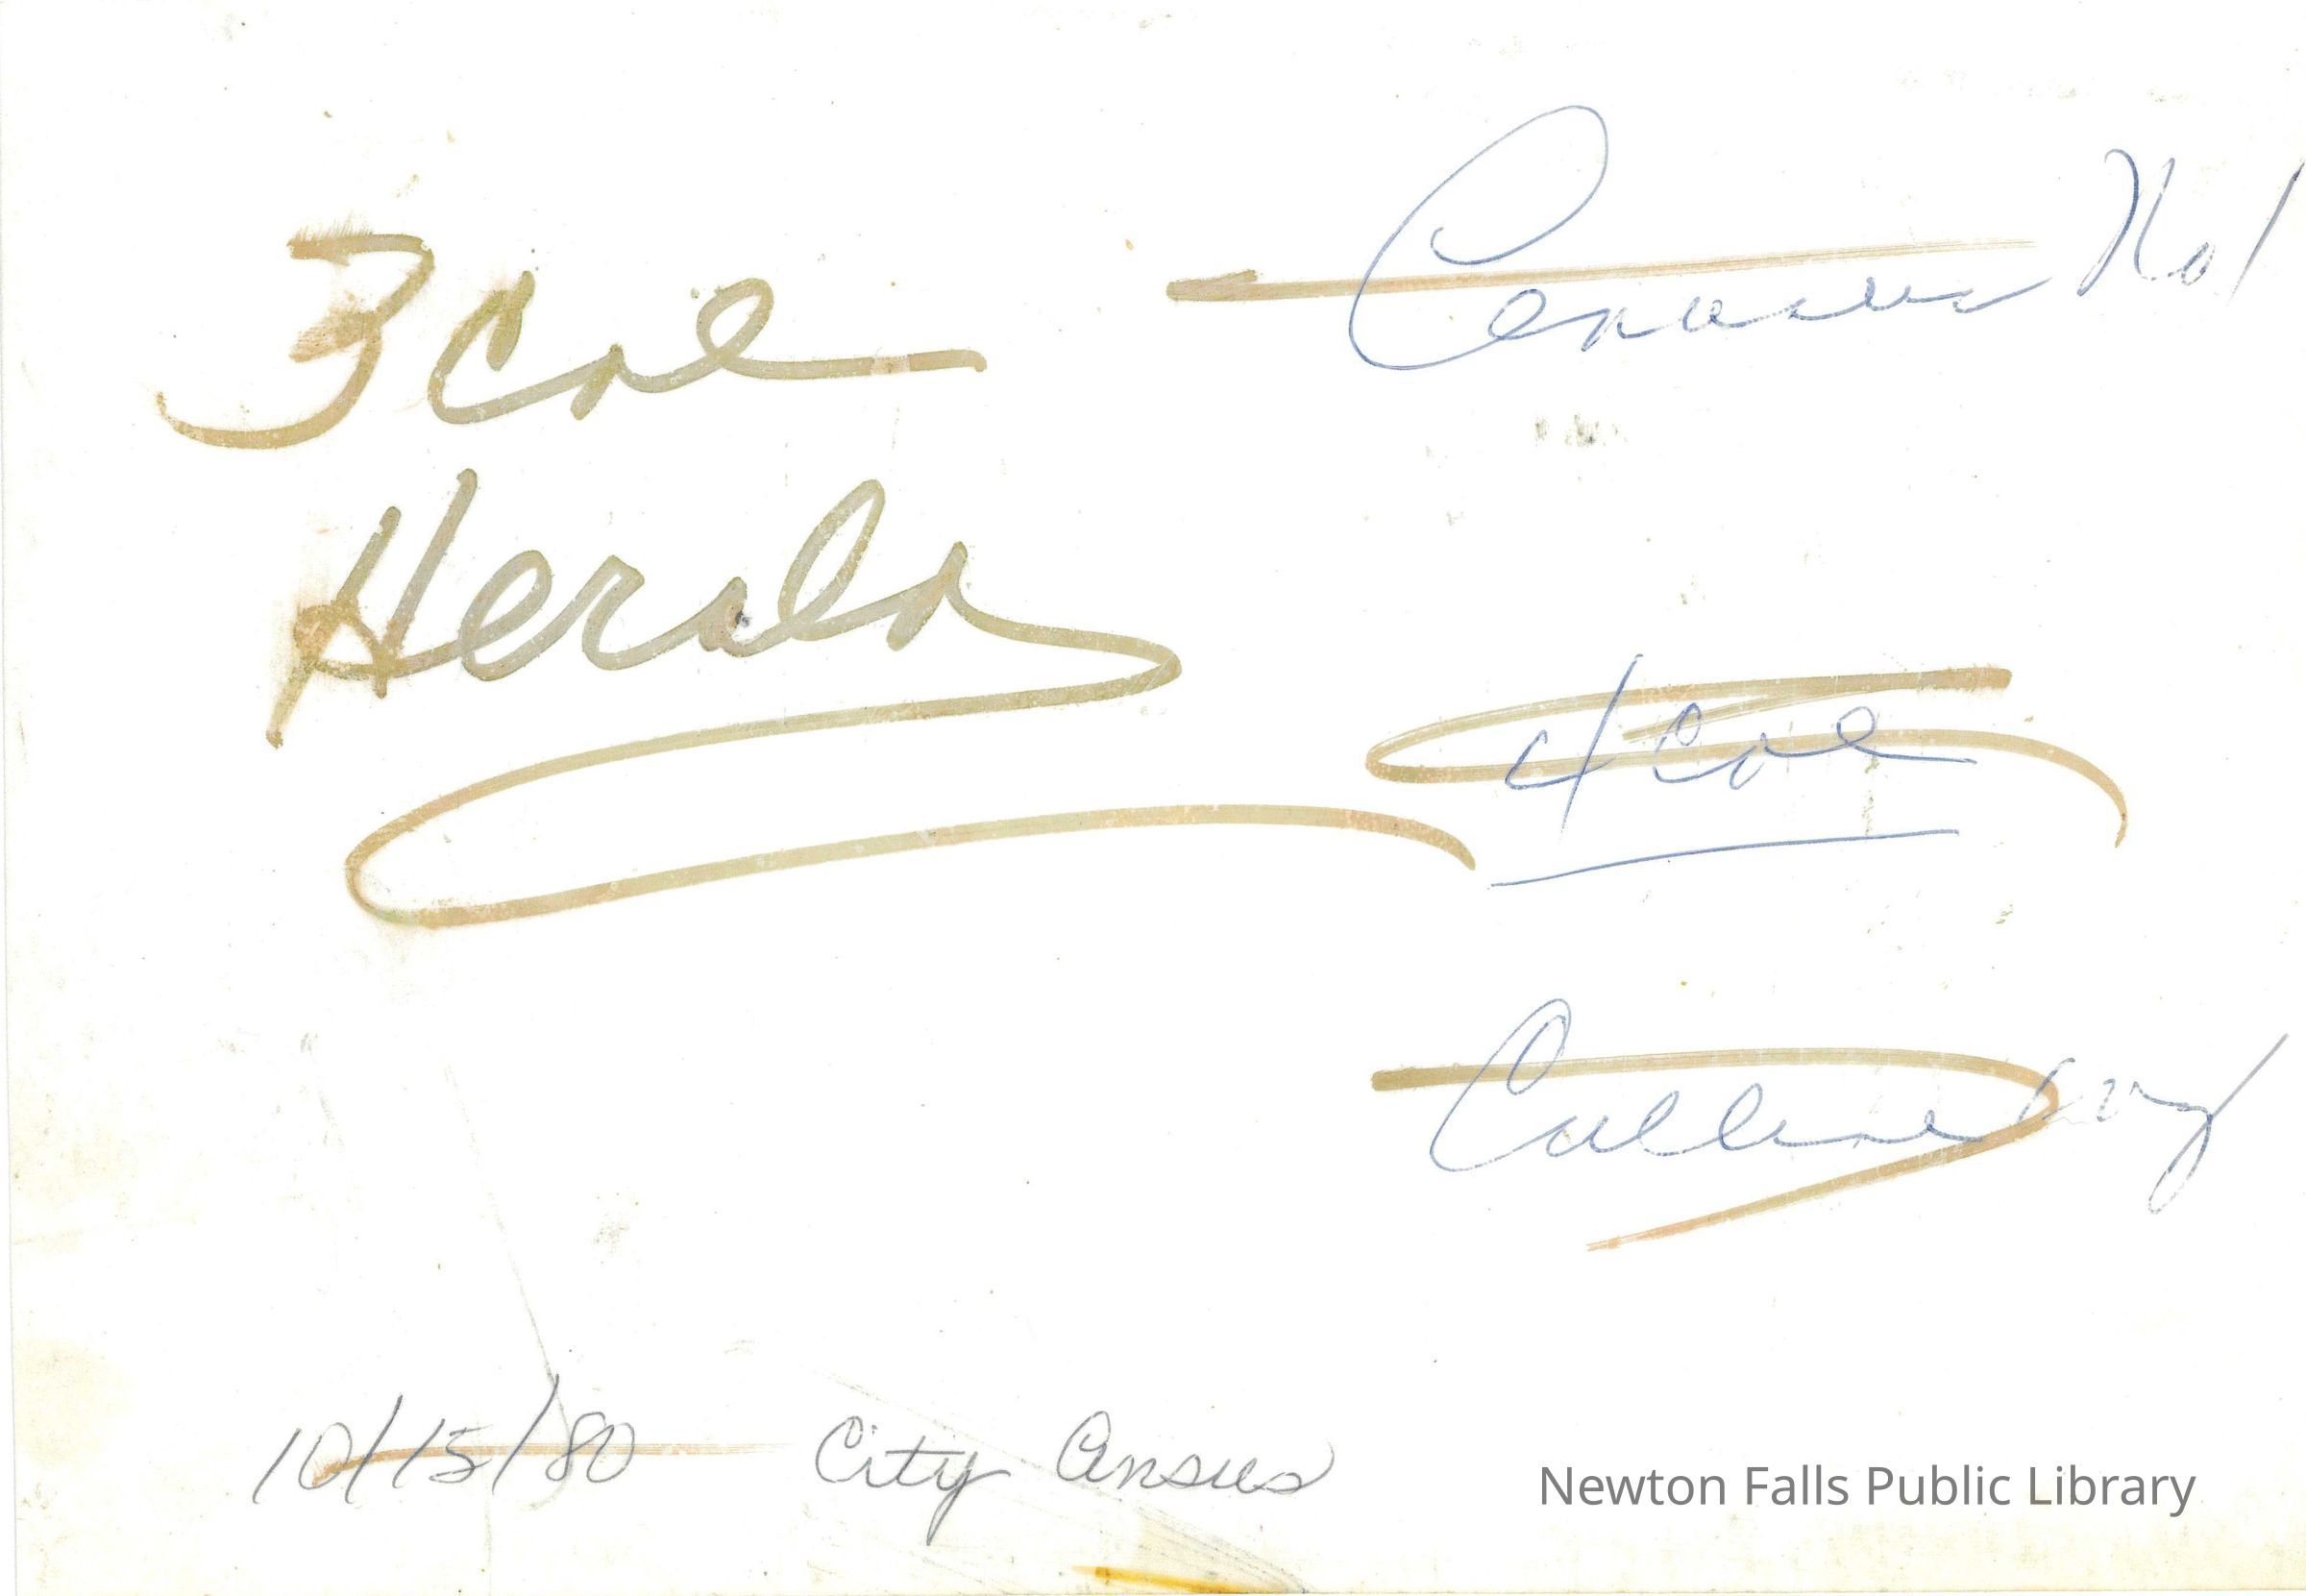 3 Col
Herald
Census No 1
4 Col
10/15/80 City Census
Newton Falls Public Library